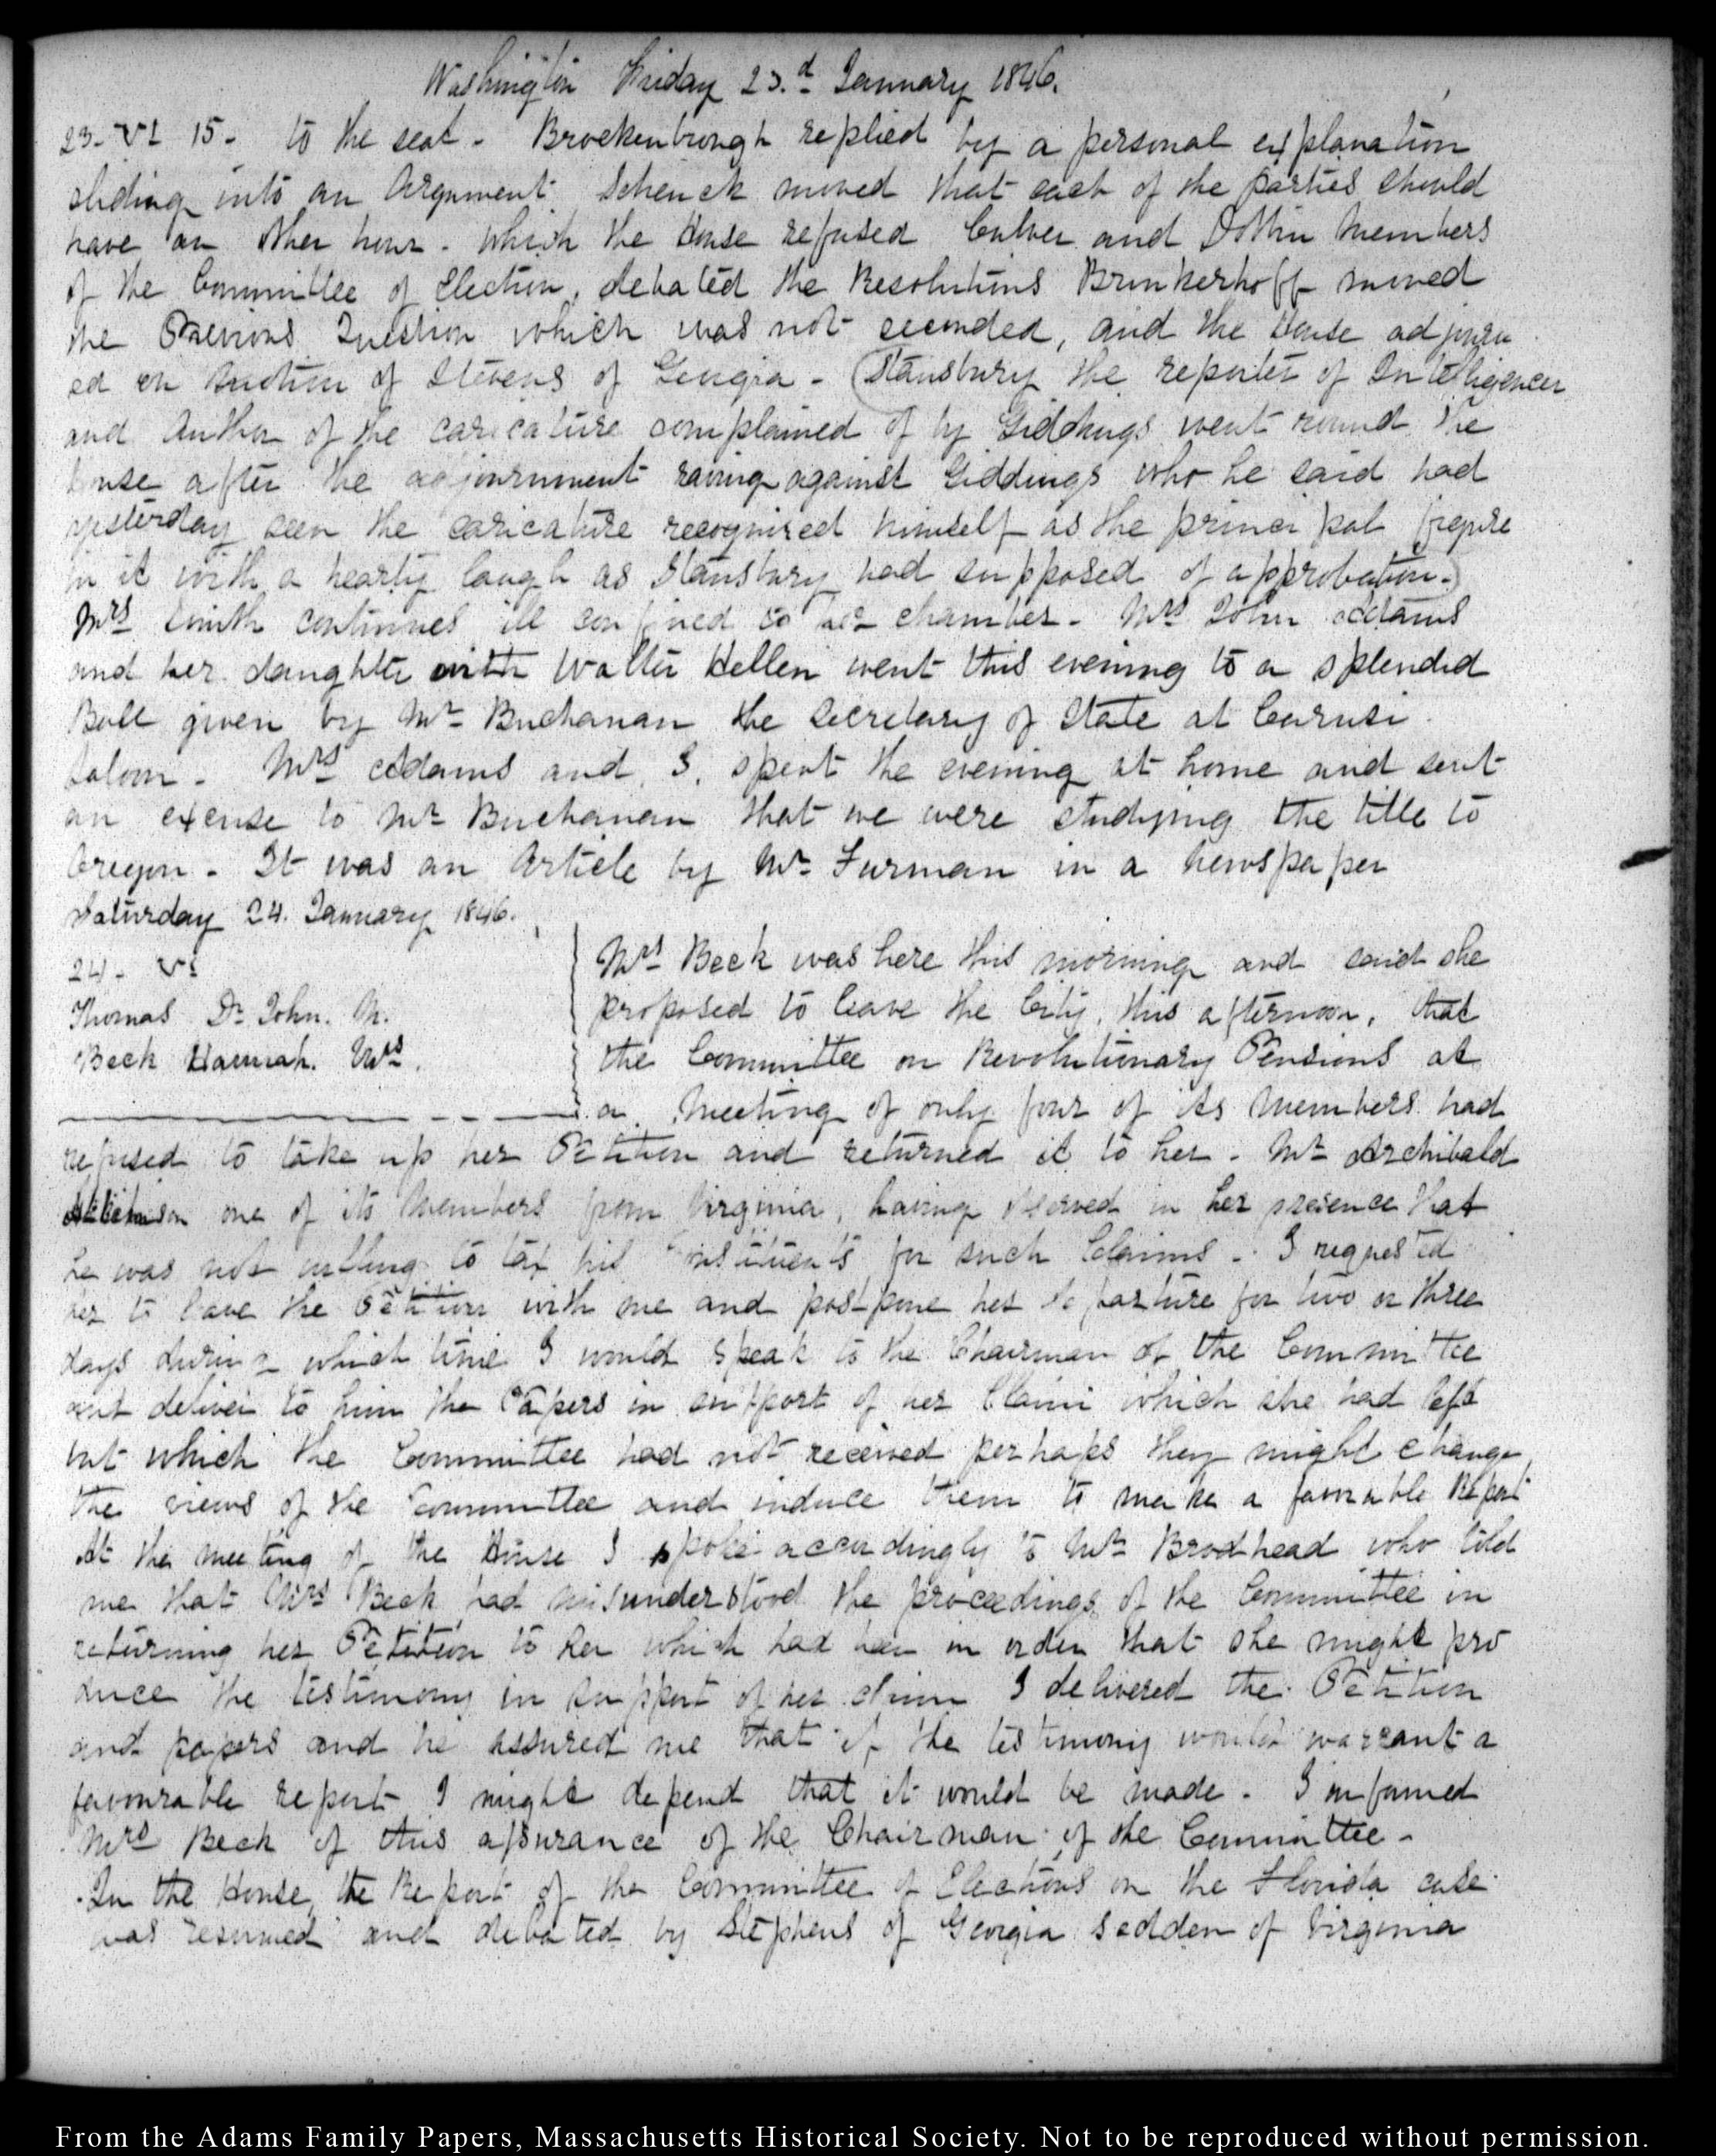 Washington Friday 23.d January 1846.
23. VI 15. to the seat. Brockenbrough replied by a personal explanation
sliding into an Argument Schenck moved that each of the parties should
have an other hour. which the House refused Culver and Dobbin Members
of the Committee of Election, debated the Resolutions Brinkerhoff moved
the Previous Question which was not seconded, and the House adjourn
ed on motion of Stevens of Georgia. (Stansbury the reporter of Intelligencer
and Author of the caricature complained of by Giddings went round the
house after the adjournment raving against Giddings who he said had
yesterday seen the caricature recognized himself as the principal figure
in it with a hearty laugh as Stansbury had supposed of approbation.)
Mrs Smith continues ill confined to her chamber. Mrs John Adams
and her daughter with Walter Hellen went this evening to a splendid
Ball given by Mr Buchanan the Secretary of State at Carusi
Saloon. Mrs Adams and I, spent the evening at home and sent
an excuse to Mr Buchanan that we were studying the title to
Oregon. It was an Article by Mr Furman in a newspaper
Saturday 24. January 1846.
24. VI
Thomas Dr John. M.
Beck Hannah. Mrs.
Mrs Beck was here this morning and said she
proposed to leave the City, this afternoon, that
the Committee on Revolutionary Pensions at
a Meeting of only four of its Members had
refused to take up her Petition and returned it to her. Mr Archibald
Atkinson one of its Members from Virginia, having observed in her presence that
he was not willing to tax his Constituents for such Claims. I requested
her to leave the Petition with me and postpone her departure for two or three
days during which time I would speak to the Chairman of the Committee
and deliver to him the Papers in support of her Claim which she had left
but which the Committee had not received perhaps they might change
the views of the Committee and induce them to make a favorable Report
At the meeting of the House I spoke accordingly to Mr Brodhead who told
me that Mrs Beck had misunderstood the proceedings of the Committee in
returning her Petition to her which had been in order that she might pro
duce the testimony in support of her claim I delivered the Petition
and papers and he assured me that if the testimony would warrant a
favourable report I might depend that it would be made. I informed
Mrs Beck of this assurance of the Chairman of the Committee.
In the House, the Report of the Committee of Elections on the Florida case
was resumed and debated by Stephens of Georgia Sedden of Virginia
From the Adams Family Papers, Massachusetts Historical Society. Not to be reproduced without permission.